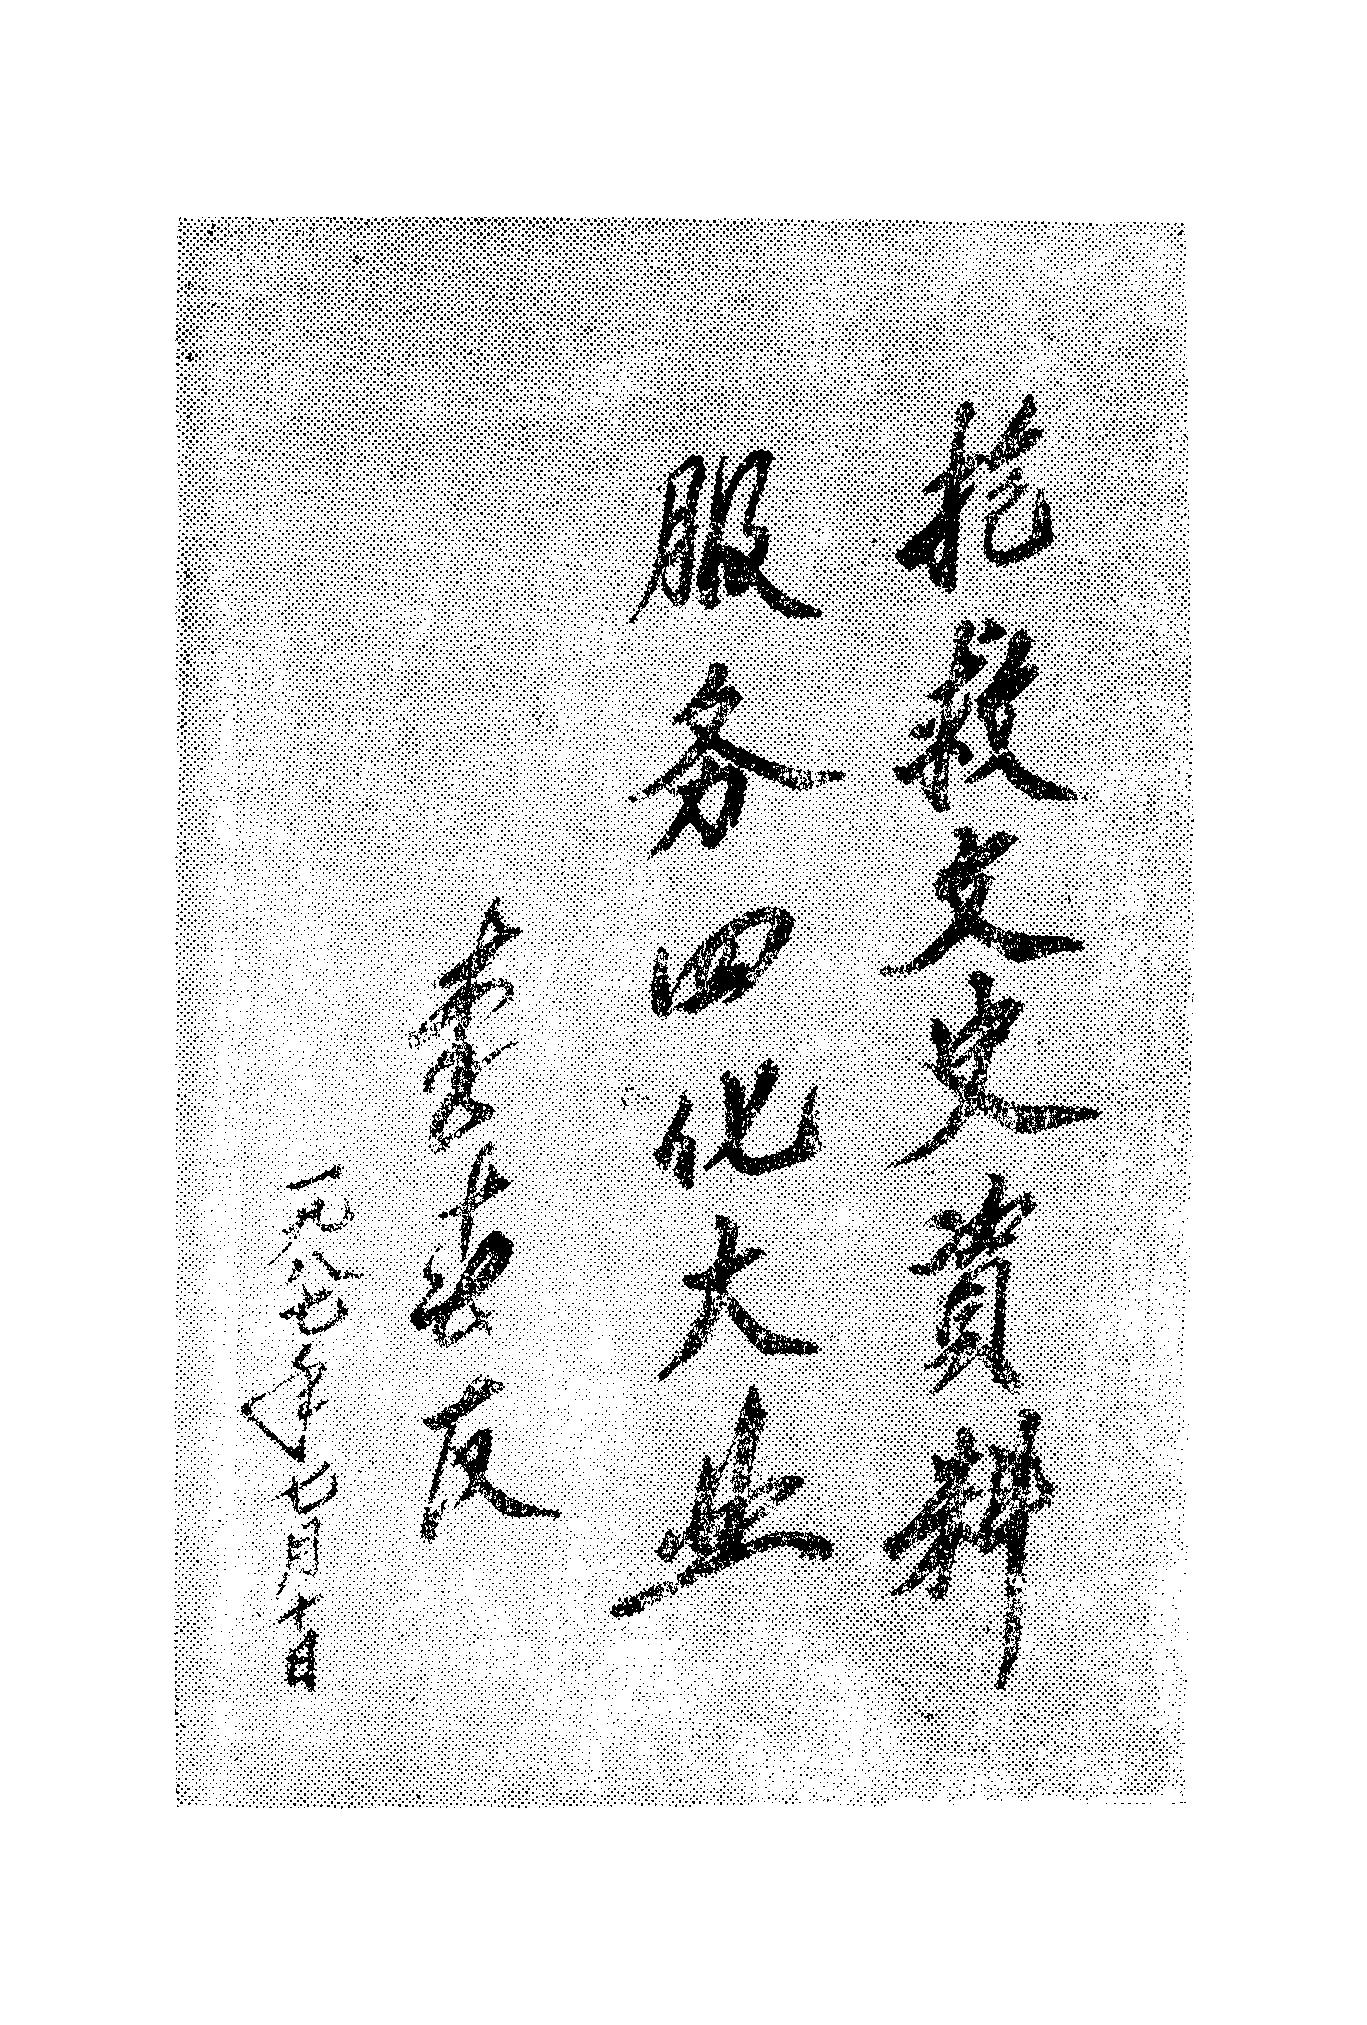 抢救文史资料
服务四化大业
友
一九八七年七月十日